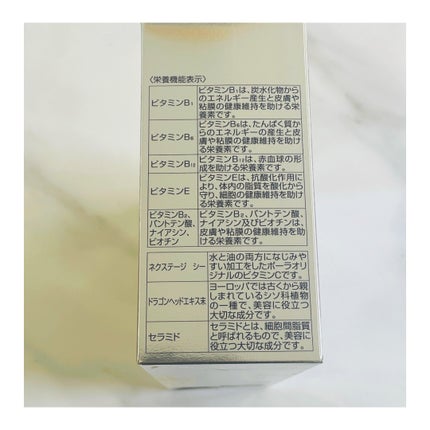 〈栄養機能表示〉
ビタミンB₁
ビタミンB₁は、炭水化物から
のエネルギー産生と皮膚や
粘膜の健康維持を助ける栄
養素です。
ビタミンB₆
ビタミンB₆は、たんぱく質か
らのエネルギーの産生と皮
膚や粘膜の健康維持を助け
る栄養素です。
ビタミンB₁₂
ビタミンB₁₂は、赤血球の形
成を助ける栄養素です。
ビタミンE
ビタミンEは、抗酸化作用に
より、体内の脂質を酸化から
守り、細胞の健康維持を助け
る栄養素です。
ビタミンB₂、
パントテン酸、
ナイアシン、
ビオチン
ビタミンB₂、パントテン酸、
ナイアシン及びビオチンは、
皮膚や粘膜の健康維持を助
ける栄養素です。
ネクステージ シー
水と油の両方になじみや
すい加工をしたポーラオリ
ジナルのビタミンCです。
ドラゴンヘッドエキス末
ヨーロッパでは古くから親
しまれているシソ科植物
の一種で、美容に役立つ
大切な成分です。
セラミド
セラミドとは、細胞間脂質
と呼ばれるもので、美容に
役立つ大切な成分です。